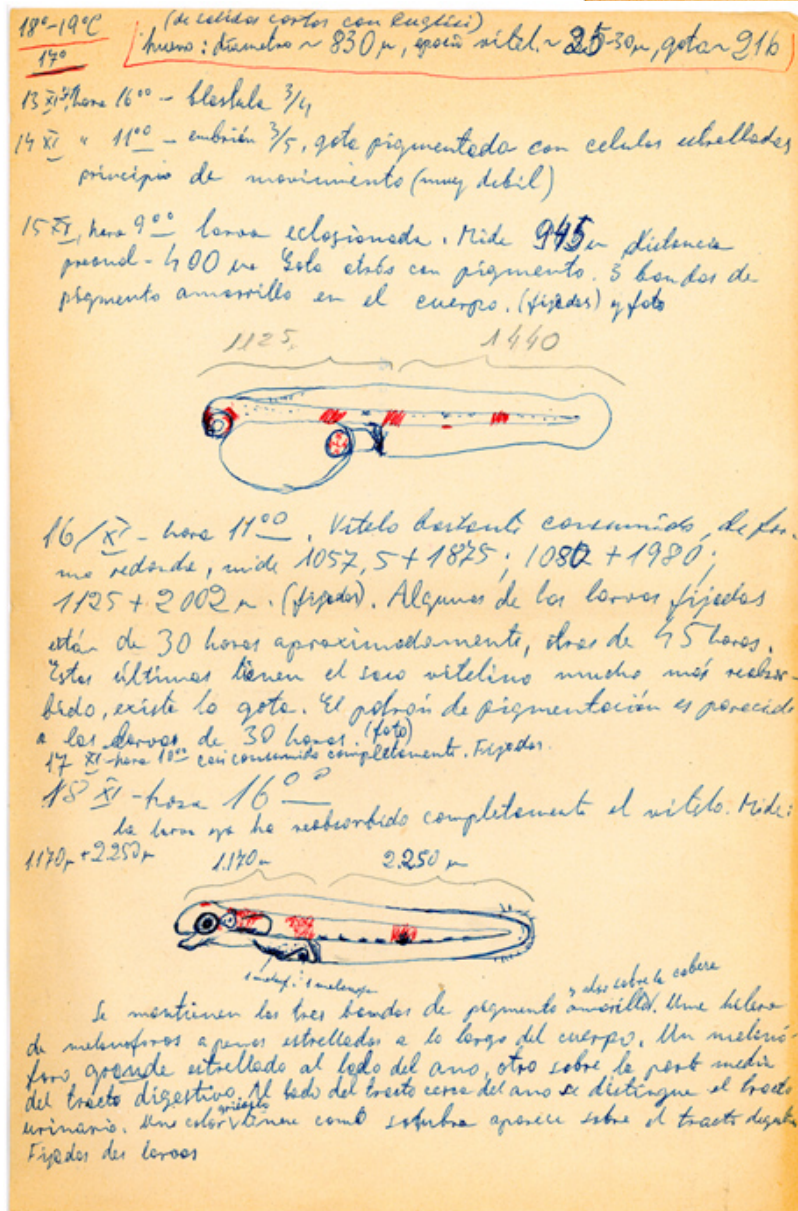 18°-19°C (de salidas cortas con
17° huevo: diametro ~ 830 μ, espacio vitel. ~ 25-30 μ, gota ~ 216
13 XI, hora 16⁰⁰ - blastula 3/4
14 XI " 11⁰⁰ - embrión 3/5, gota pigmentada con celulas estrelladas
principio de movimiento (muy debil)
15 XI, hora 9⁰⁰ larva eclosionada. Mide 945 μ distancia
preanal - 400 μ Gota atrás con pigmento. 3 bandas de
pigmento amarillo en el cuerpo. (fijadas) y foto
1125 1440
16/XI - hora 11⁰⁰. Vitelo bastante consumido, de for-
ma redonda, mide 1057,5 + 1875; 1080 + 1980;
1125 + 2002 μ. (fijadas). Algunas de las larvas fijadas
están de 30 horas aproximadamente, otras de 45 horas.
Estas últimas tienen el saco vitelino mucho más reabsor-
bido, existe la gota. El patrón de pigmentación es parecido
a las larvas de 30 horas. (foto)
17 XI - hora 10⁰⁰ casi consumido completamente. Fijadas.
18 XI - hora 16⁰⁰
la larva ya ha reabsorbido completamente el vitelo. Mide:
1.170 μ + 2.250 μ 1.170 μ 2.250 μ
1 melanof.
y alas sobre la cabeza
Se mantienen las tres bandas de pigmento amarillo. Una hilera
de melanoforos apenas estrellados a lo largo del cuerpo. Un melanó-
foro grande estrellado al lado del ano, otro sobre la part media
del tracto digestivo. Al lado del tracto cerca del ano se distingue el tracto
urinario. Une color como sombra aparece sobre el tracto digestivo
Fijadas dos larvas